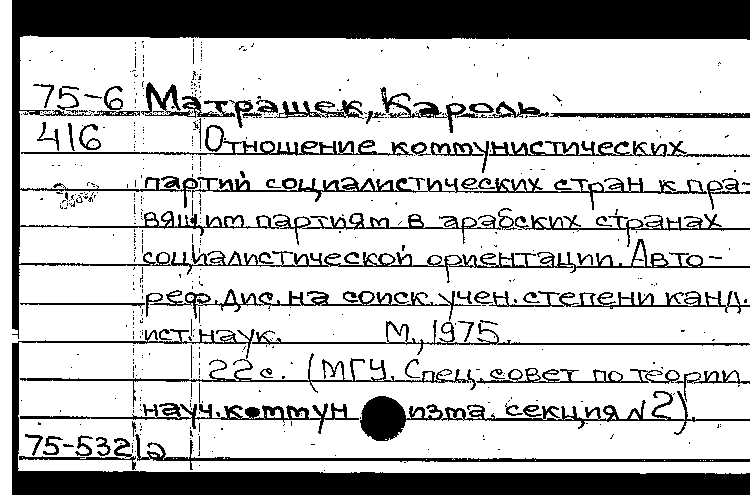 75-6 Матрашек, Кароль.
416 Отношение коммунистических
партий социалистических стран к пра-
вящим партиям в арабских странах
социалистической ориентации. Авто-
реф. дис. на соиск. учен. степени канд.
ист. наук. М., 1975.
22 с. (МГУ. Спец. совет по теории
науч. коммунизма. секция №2).
75-532/а